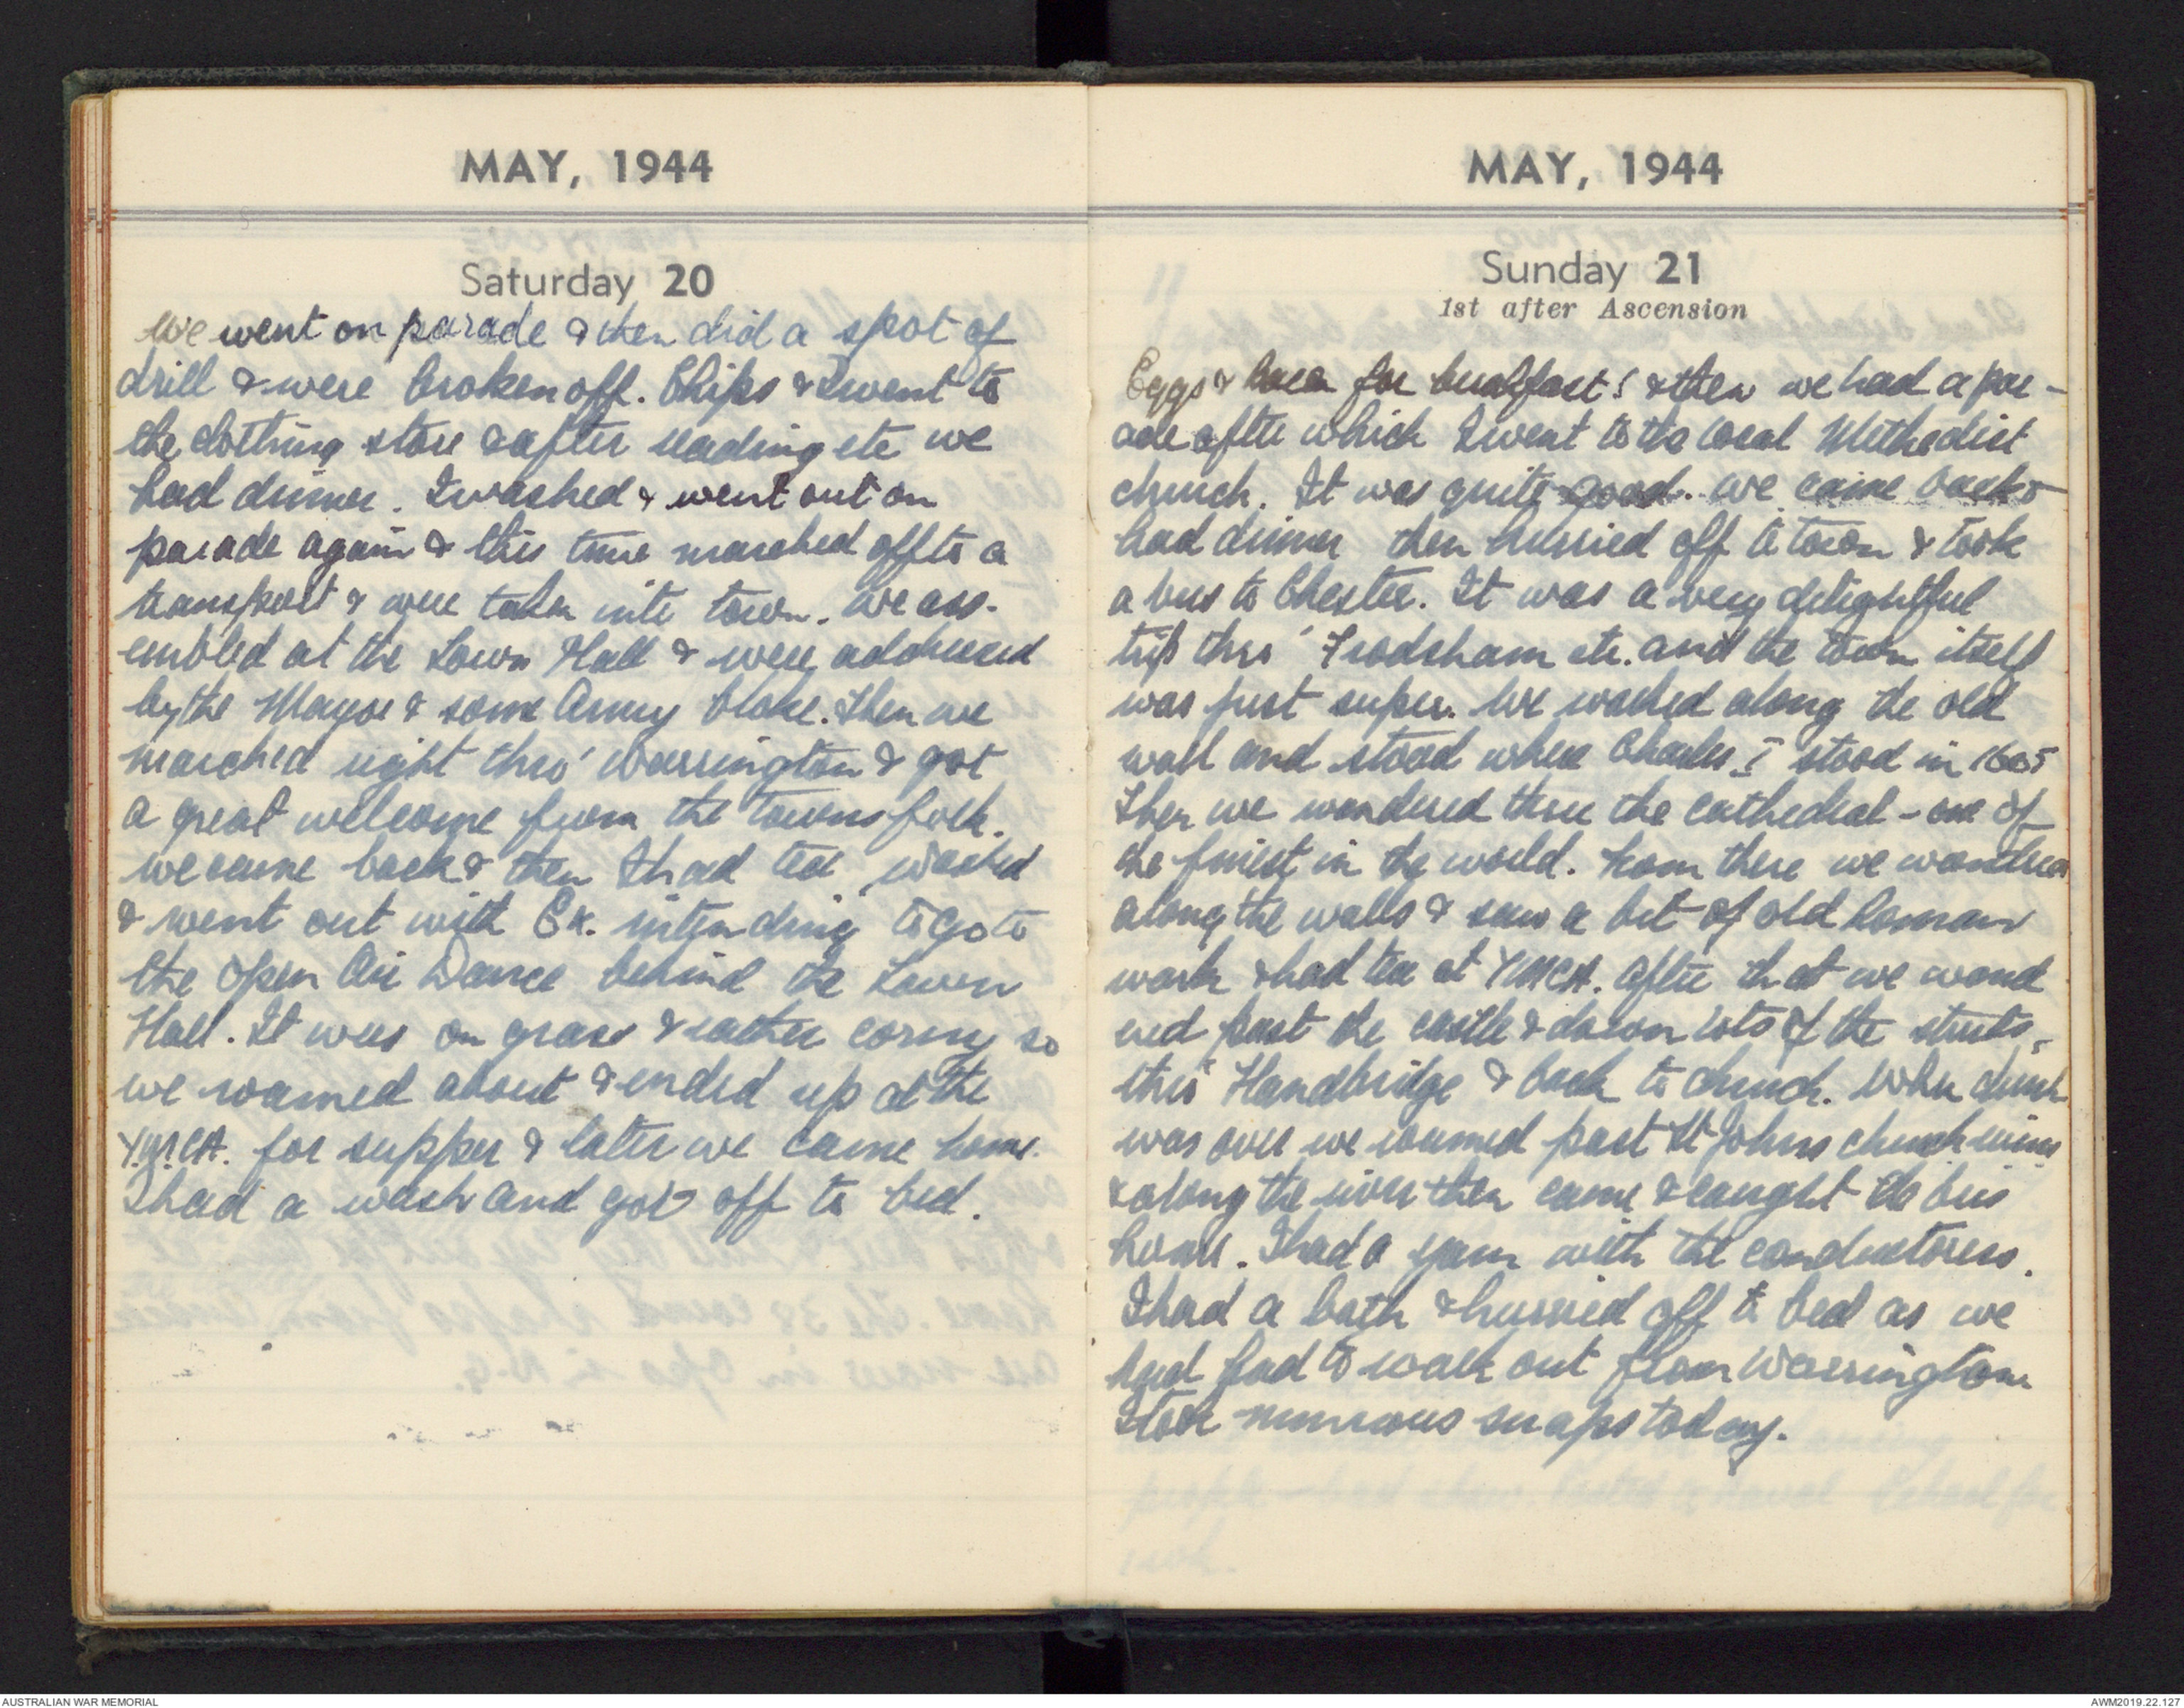 MAY, 1944
Saturday 20
We went on parade & then did a spot of
drill & were broken off. Chips & I went to
the clothing store & after reading etc we
had dinner. I washed & went out on
parade again & this time marched off to a
transport & were taken into town. We ass-
embled at the Town Hall & were addressed
by the Mayor & some Army bloke. Then we
marched right thro' Warrington & got
a great welcome from the townsfolk.
We came back & then I had tea, washed
& went out with Ek. intending to go to
the Open Air Dance behind the Town
Hall. It was on grass & rather corny so
we roamed about & ended up at the
Y.M.C.A. for supper & later we came home.
I had a wash and got off to bed.
MAY, 1944
Sunday 21
1st after Ascension
Eggs & bacon for breakfast! & then we had a par-
ade after which I went to the local Methodist
church. It was quite good. We came back &
had dinner then hurried off to town & took
a bus to Chester. It was a very delightful
trip thro' Frodsham etc. and the town itself
was just super. We walked along the old
wall and stood where Charles I stood in
Then we wandered thru the cathedral - one of
the finest in the world. From there we wandered
along the walls & saw a bit of old Roman
work & had tea at YMCA. After that we wand
ered past the castle & down lots of the streets,
thro' Handbridge & back to church. When church
was over we roamed past St Johns church ruins
& along the river then came & caught the bus
home. I had a yarn with the conductoress.
I had a bath & hurried off to bed as we
had had to walk out from Warrington.
I took numerous snaps today.
AUSTRALIAN WAR MEMORIAL
AWM2019.22.127